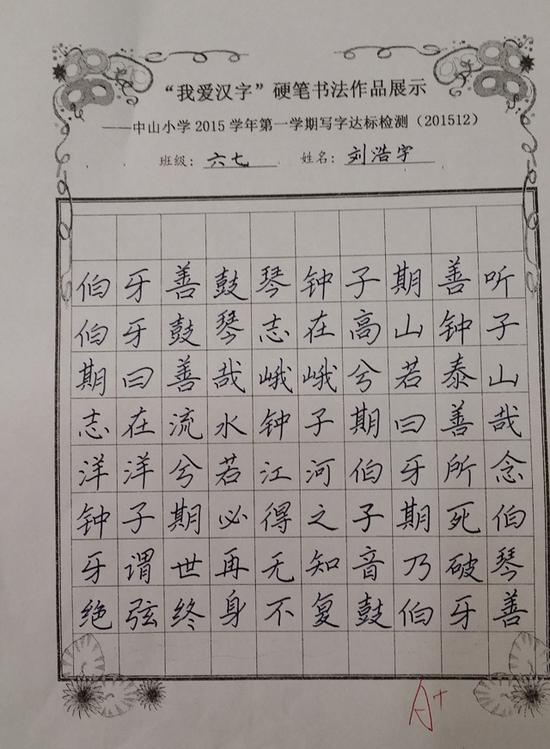 “我爱汉字”硬笔书法作品展示
——中山小学2015学年第一学期写字达标检测（201512）
班级：六七 姓名：刘浩宇
伯牙善鼓琴钟子期善听
伯牙鼓琴志在高山钟子
期曰善哉峨峨兮若泰山
志在流水钟子期曰善哉
洋洋兮若江河伯牙所念
钟子期必得之子期死伯
牙谓世再无知音乃破琴
绝弦终身不复鼓伯牙善
A+